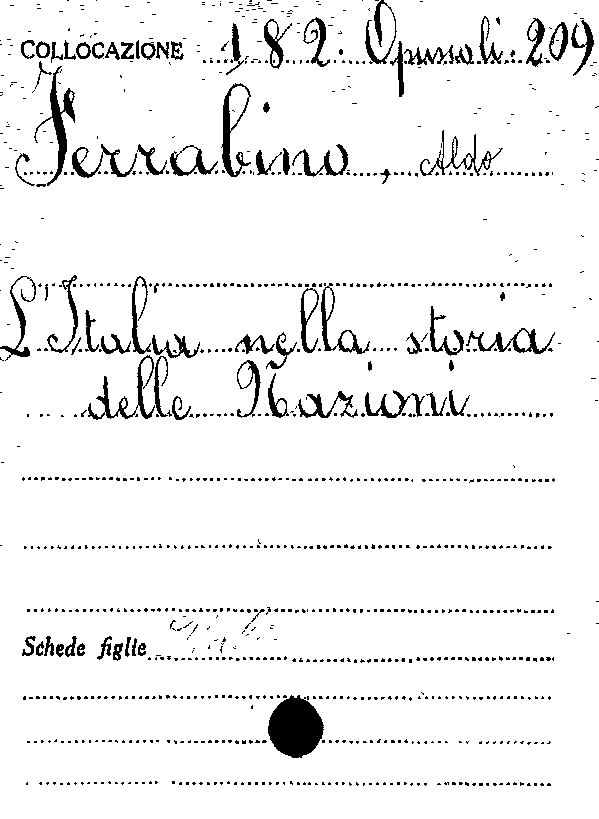 COLLOCAZIONE 182. Opuscoli. 209
Ferrabino, Aldo
L'Italia nella storia
delle Nazioni
Schede figlie